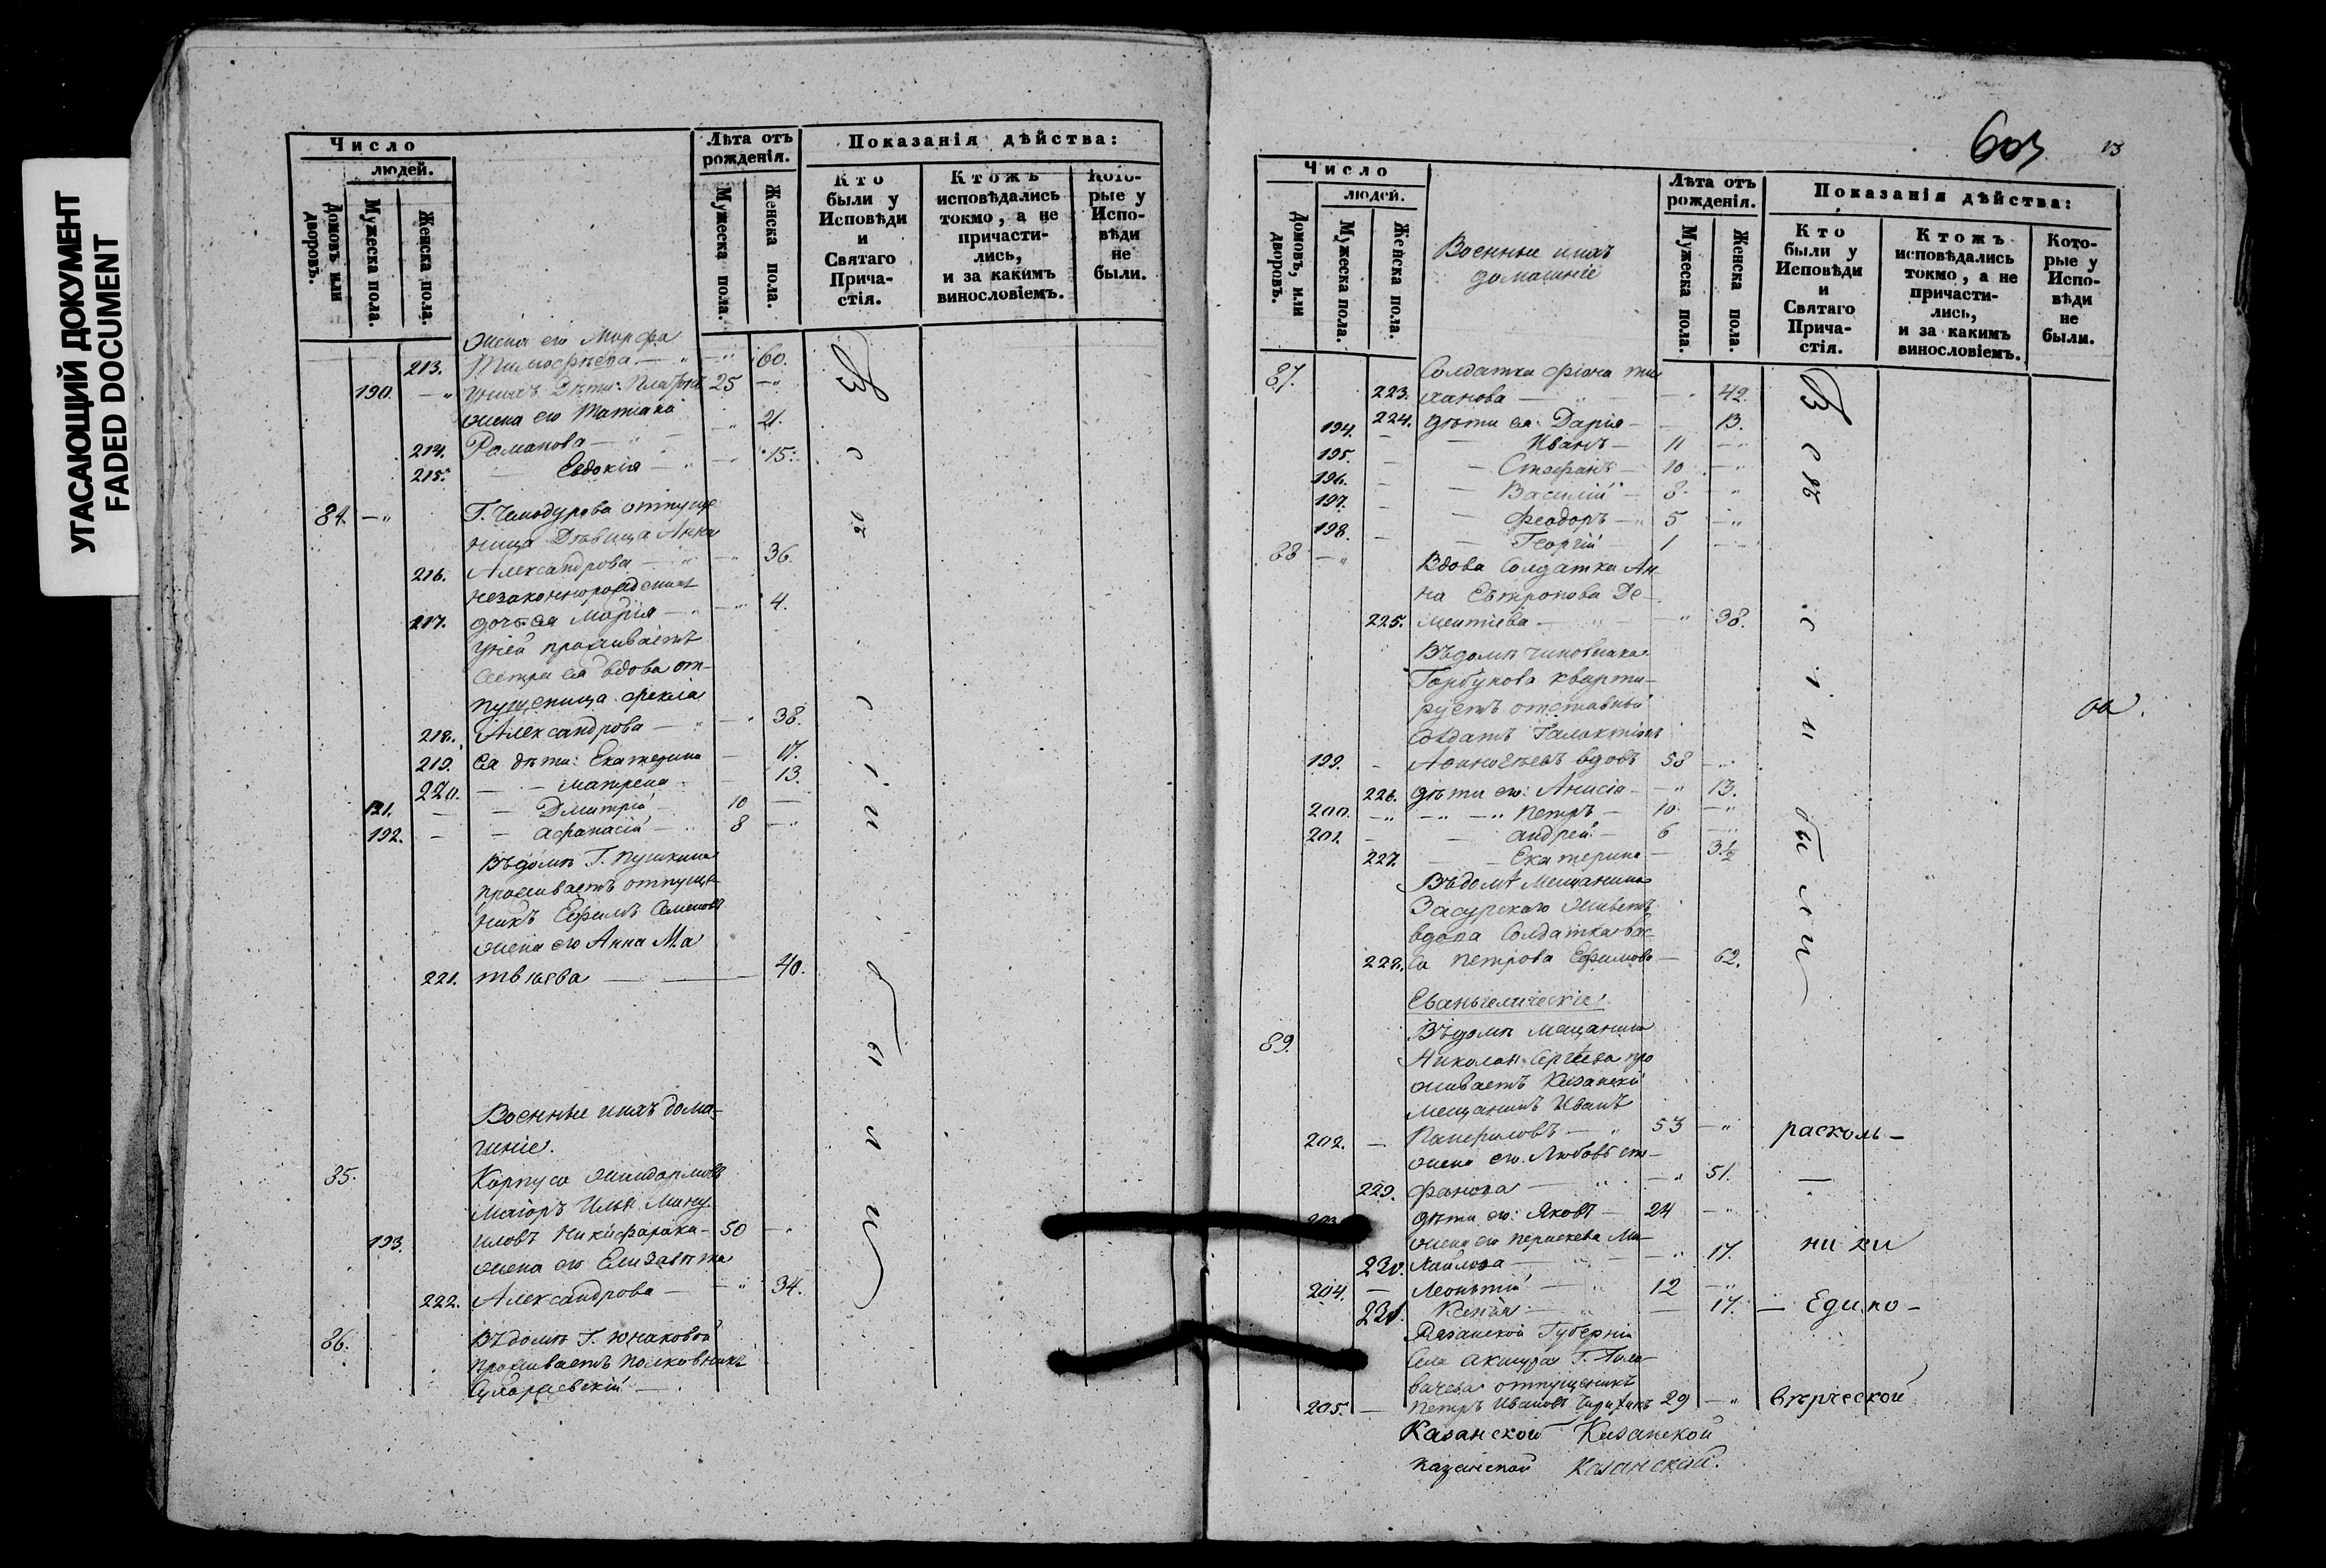 УГАСАЮЩИЙ ДОКУМЕНТ
FADED DOCUMENT
Число
людей.
Домовъ или дворовъ.
Мужеска пола.
Женска пола.
Лѣта отъ рожденія.
Мужеска пола.
Женска пола.
Показанія дѣйства:
Кто были у Исповѣди и Святаго Прича-стія.
Ктожъ исповѣдались токмо, а не причасти-лись, и за какимъ винословіемъ.
Кото-рые у Испо-вѣди не были.
жена его Марфа
213. 60.
190. унихъ Дѣти: Платонъ 25
жена его Татіана
214. Романова 21.
215. Евдокія 15.
84. Г. Чемодурова отпуще
ница Дѣвица Анна
216. Александрова 36.
незаконнорожденная
217. дочь ея Марія 4.
уней проживаетъ
Сестра ея вдова от-
пущеница Фекла
218. Александрова 38.
219. Ея дѣти: Екатерина 17.
220. Матрена 13.
191. Дмитрій 10
192. Афанасій 8
Въ домѣ Г. Пушкина
проживаетъ отпуще
никъ Ефимъ Семеновъ
жена его Анна Ма
221. твѣева 40.
Военные ихъ дома-
шніе.
85. Корпуса Жандармовъ
Маіоръ Илья
193. 50
жена его Елизавѣта
222. Александрова 34.
86. Въ домѣ Г. Юнаковой
проживаетъ Полковникъ
Всѣ
были
603
13
Число
людей.
Домовъ, или дворовъ.
Мужеска пола.
Женска пола.
Военные ихъ
домашніе
Лѣта отъ рожденія.
Мужеска пола.
Женска пола.
Показанія дѣйства:
Кто были у Исповѣди и Святаго Прича-стія.
Ктожъ исповѣдались токмо, а не причасти-лись, и за какимъ винословіемъ.
Кото-рые у Испо-вѣди не были.
87. Солдатка Фіона
223. 42.
224. дѣти ея: Дарія 13.
194. Иванъ 11
195. Стефанъ 10
196. Василій 8
197. Феодоръ 5
198. Георгій 1
88 Вдова Солдатка Ан-
на Евтропова Де-
225. ментіева 38.
Въ домѣ чиновника
Горбунова кварти-
руетъ отставный
Солдатъ Галактіонъ
199. вдовъ 58
226. дѣти его: Анисія 13.
200. Петръ 10
201. Андрей 6
227. Екатерина 3½
Въ домѣ Мещанина
Засурскаго живетъ
вдова Солдатка Вас-
228. са Петрова Ефимова 62.
89. Въ домѣ мещанина
Николая Сергѣева про
живаетъ Казанскій
мещанинъ Иванъ
202. Панфиловъ 53
жена его Любовь Сте-
229. фанова 51.
203 дѣти его: Яковъ 24
жена его Параскева Ми-
230. хайлова 17.
204. Леонтій 12
231. Ксенія 17.
Губерніи
отпущеникъ
205. Петръ Ивановъ 29
Всѣ
были
расколь-
ники
Едино-
вѣрческой
Казанской Казанской
Казанской Казанской.